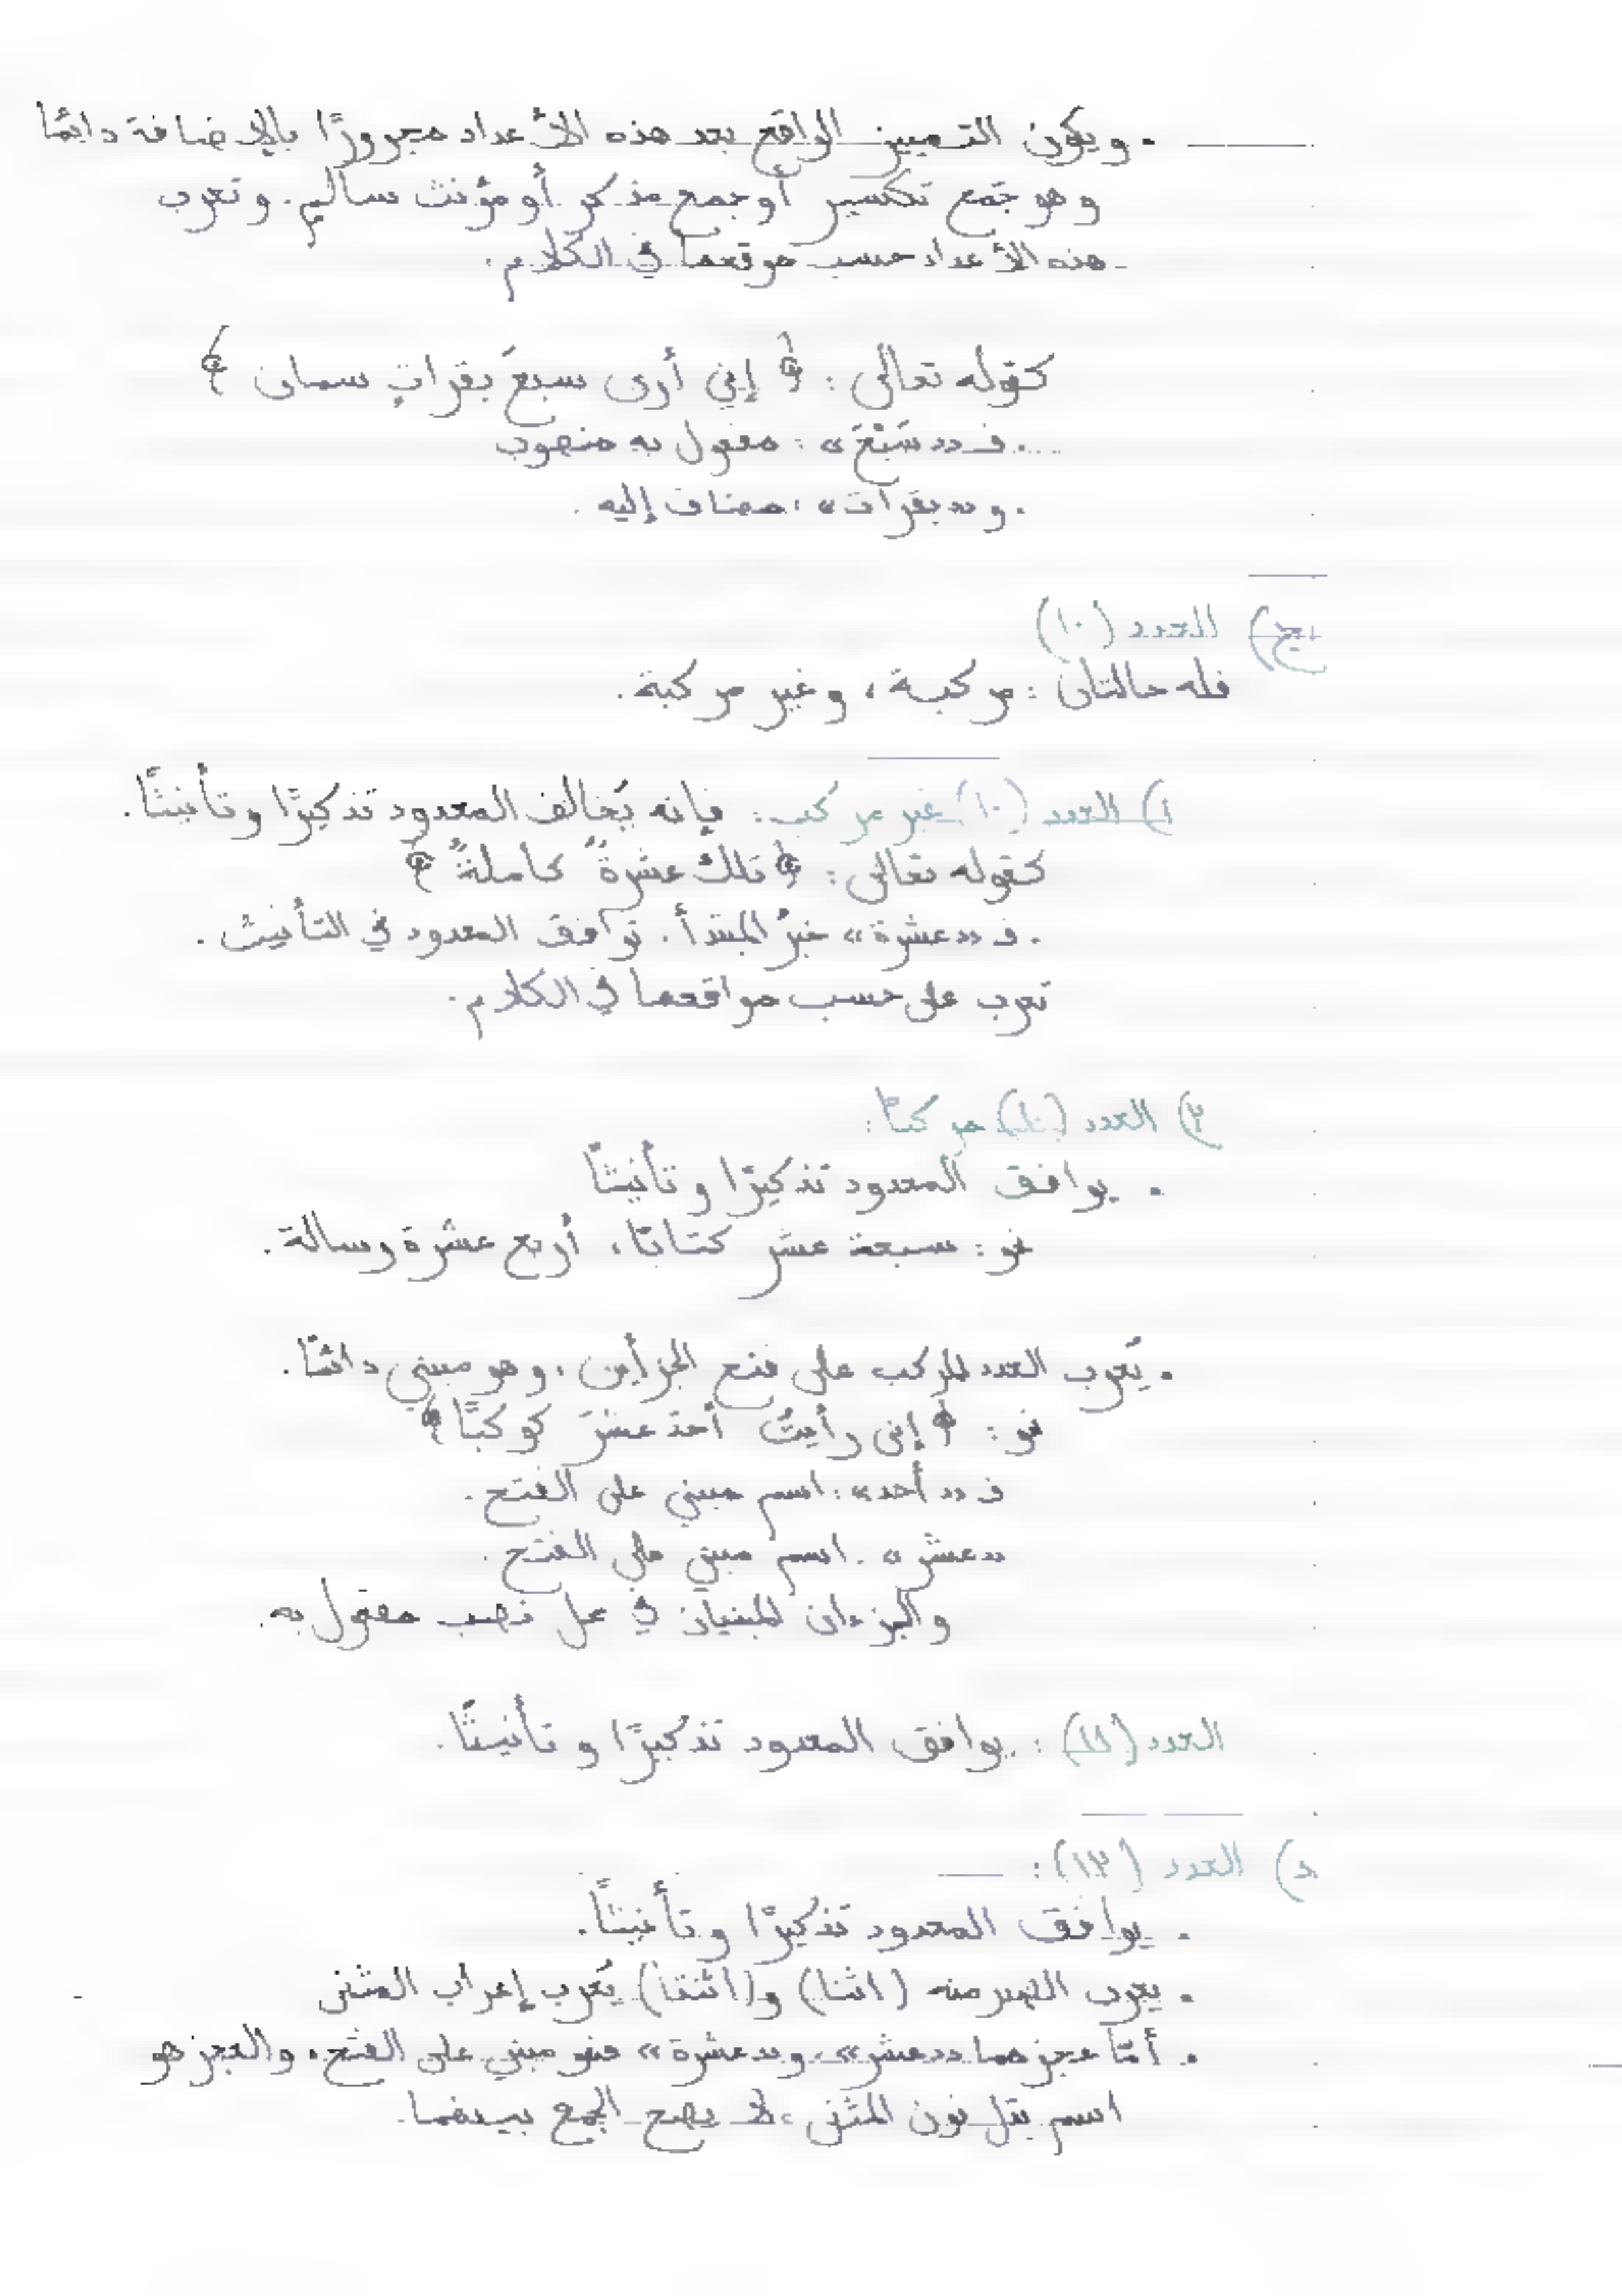 . ويكون التمييز الواقع بعد هذه الأعداد مجرورًا بالإضافة دائمًا
وهو جمع تكسير أو جمع مذكر أو مؤنث سالم. وتعرب
هذه الأعداد حسب موقعها في الكلام.
كقوله تعالى: ﴿ إني أرى سبعَ بقراتٍ سمان ﴾
. فـ «سَبْعَ»: مفعول به منصوب
. و «بقرات»: مضاف إليه.
ج) العدد (١٠)
فله حالتان: مركبة، وغير مركبة.
١) العدد (١٠) غير مركب: فإنه يُخالف المعدود تذكيرًا وتأنيثًا.
كقوله تعالى: ﴿ تلك عشرةٌ كاملةٌ ﴾
. فـ «عشرة» خبرُ المبتدأ. توافق المعدود في التأنيث.
تعرب على حسب مواقعها في الكلام.
٢) العدد (١٠) مركبًا:
. يوافق المعدود تذكيرًا وتأنيثًا
نحو: سبعة عشر كتابًا، أربع عشرة رسالة.
. يُعرب العدد المركب على فتح الجزأين، وهو مبني دائمًا.
نحو: ﴿ إني رأيتُ أحدَ عشرَ كوكبًا ﴾
فـ «أحد»: اسم مبني على الفتح.
«عشر». اسم مبني على الفتح.
والجزءان المبنيان في محل نصب مفعول به.
العدد (١١): يوافق المعدود تذكيرًا وتأنيثًا.
د) العدد (١٢):
. يوافق المعدود تذكيرًا وتأنيثًا.
. يعرب الصدر منه (اثنا) و(اثنتا) يُعرب إعراب المثنى
. أمّا عجزهما «عشر»، و«عشرة» فهو مبني على الفتح. والعجز هو
اسم بدل نون المثنى، لا يصح الجمع بينهما.